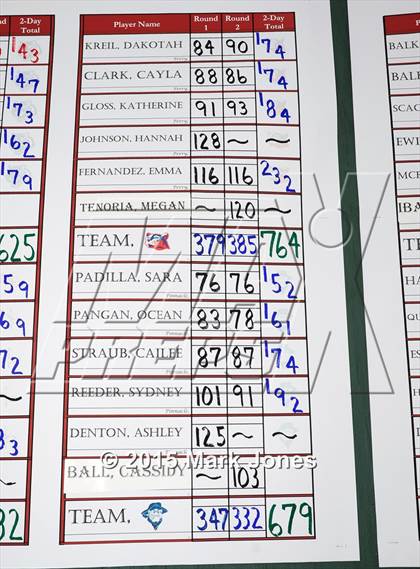 Player Name Round 1 Round 2 2-Day Total
KREIL, DAKOTAH 84 90 174
Perry
CLARK, CAYLA 88 86 174
Perry
GLOSS, KATHERINE 91 93 184
Perry
JOHNSON, HANNAH 128 ~ ~
Perry
FERNANDEZ, EMMA 116 116 232
Perry
TENORIA, MEGAN ~ 120 ~
TEAM, 379 385 764
PADILLA, SARA 76 76 152
PANGAN, OCEAN 83 78 161
STRAUB, CAILEE 87 87 174
REEDER, SYDNEY 101 91 192
DENTON, ASHLEY 125 ~ ~
BALL, CASSIDY ~ 103
TEAM, 347 332 679
2-Day Total
143
147
173
162
179
625
159
169
172
~
183
~
© 2015 Mark Jones